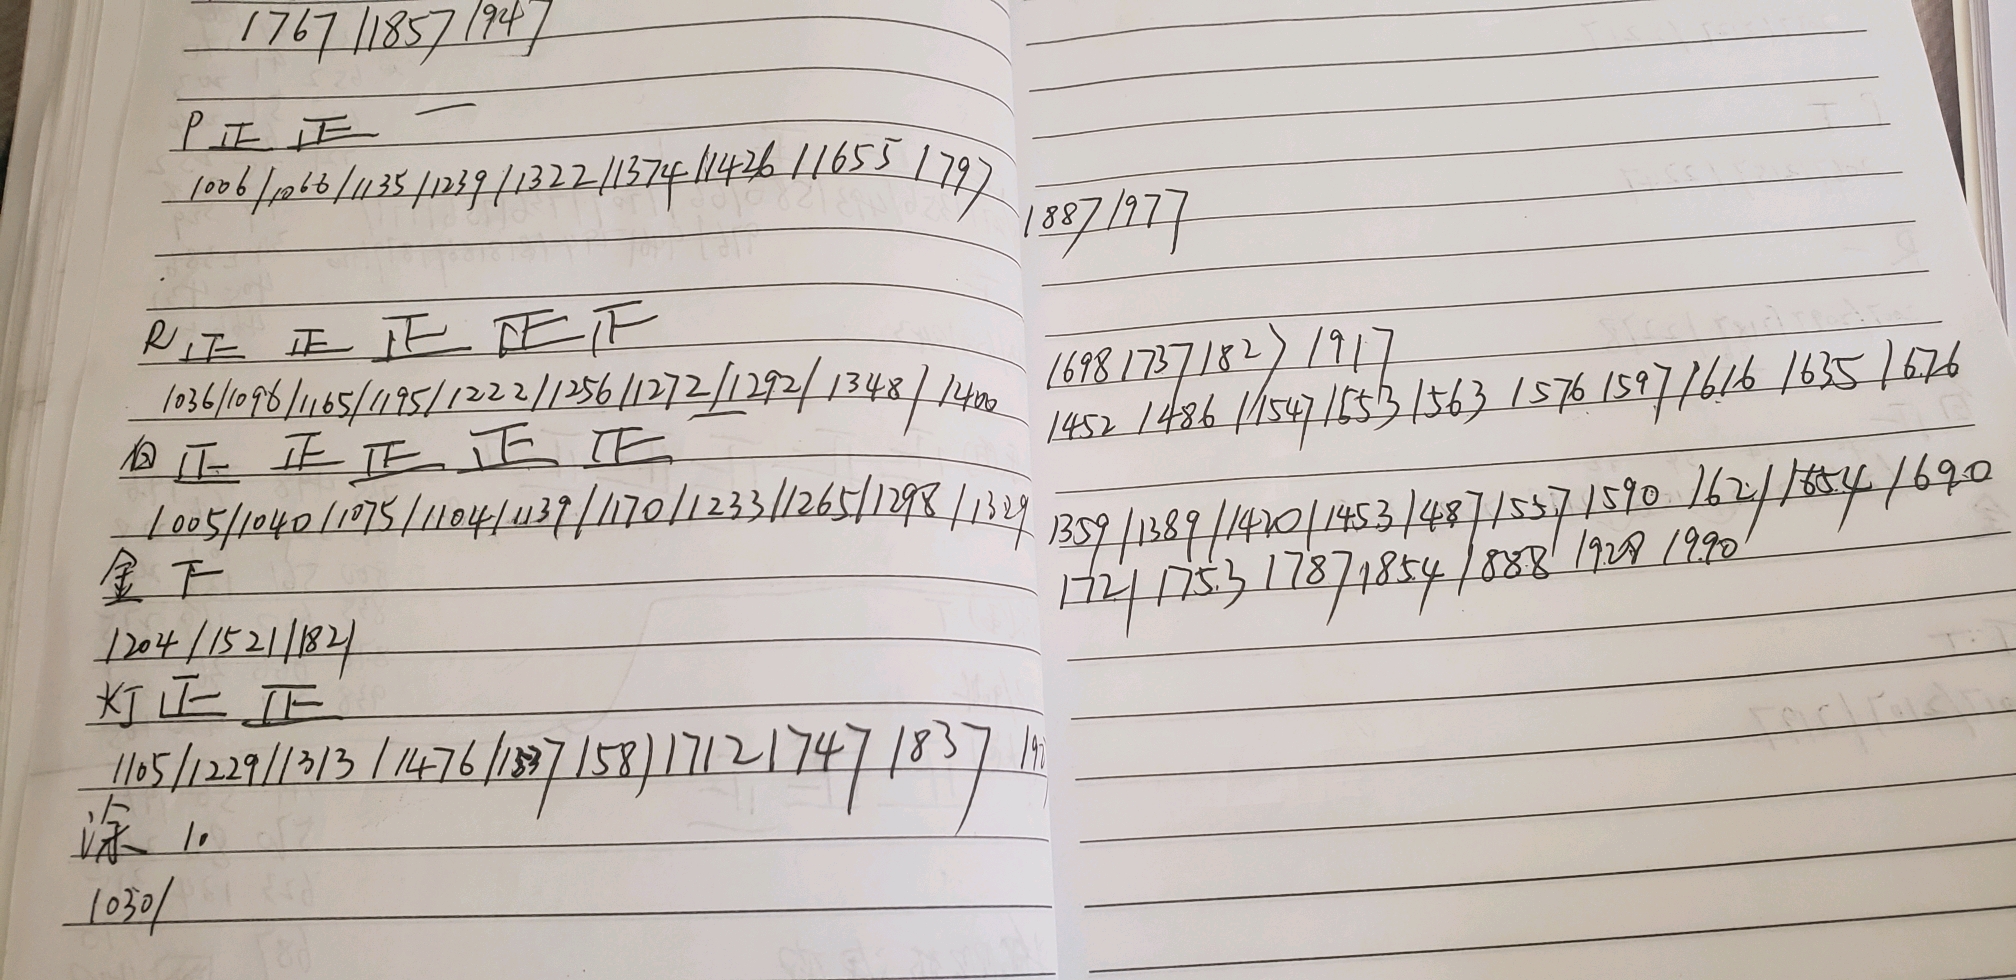 1767/1857/947
P 正 正 一
1006/1066/1135/1239/1322/1374/1426/1655/1797
R 正 正 正 正 正
1036/1096/1165/1195/1222/1256/1272/1292/1348/1400
正 正 正 正 正
1005/1040/1075/1104/1139/1170/1233/1265/1298/1329
金 下
1204/1521/1821
灯 正 正
1105/1229/1313/1476/1537/1581/1712 1747 1837
涂 1.
1030/
1887/1977
1698 1737 1827 1917
1452 1486/1547/1553 1563 1576 1597/1616 1635 1676
1359/1389/1420/1453/1487/1557 1590 1621/1654/1690
1721 1753 1787 1854/1888 1928 1990